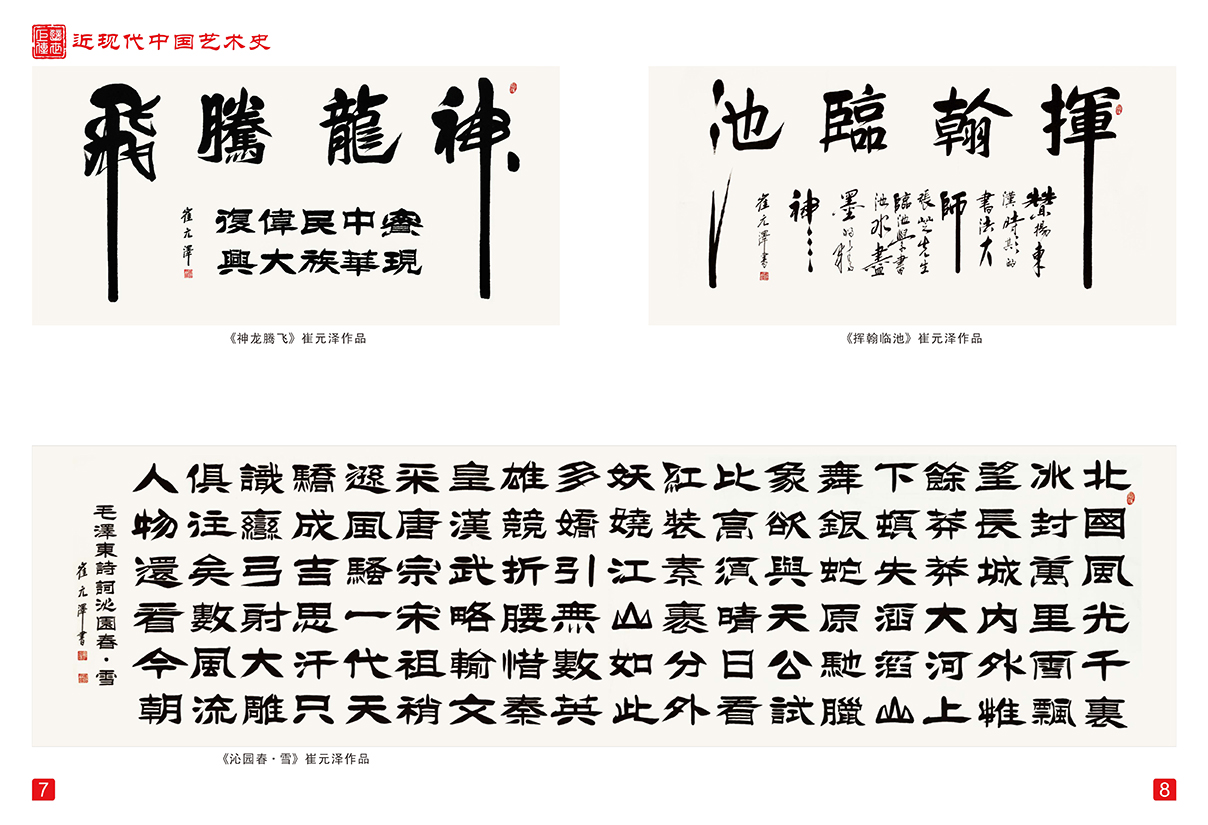 近现代中国艺术史
神龍騰飛
實現
中華
民族
偉大
復興
崔元澤
《神龙腾飞》崔元泽作品
揮翰臨池
贊揚東
漢時其的
書法大
師
張芝先生
臨池學書
池水盡
墨
神
崔元澤書
《挥翰临池》崔元泽作品
北國風光千裏
冰封萬里雪飄
望長城內外惟
餘莽莽大河上
下頓失滔滔山
舞銀蛇原馳臘
象欲與天公試
比高須晴日看
紅裝素裹分外
妖嬈江山如此
多嬌引無數英
雄競折腰惜秦
皇漢武略輸文
采唐宗宋祖稍
遜風騷一代天
驕成吉思汗只
識彎弓射大雕
俱往矣數風流
人物還看今朝
毛澤東詩詞沁園春·雪
崔元澤書
《沁园春·雪》崔元泽作品
7
8